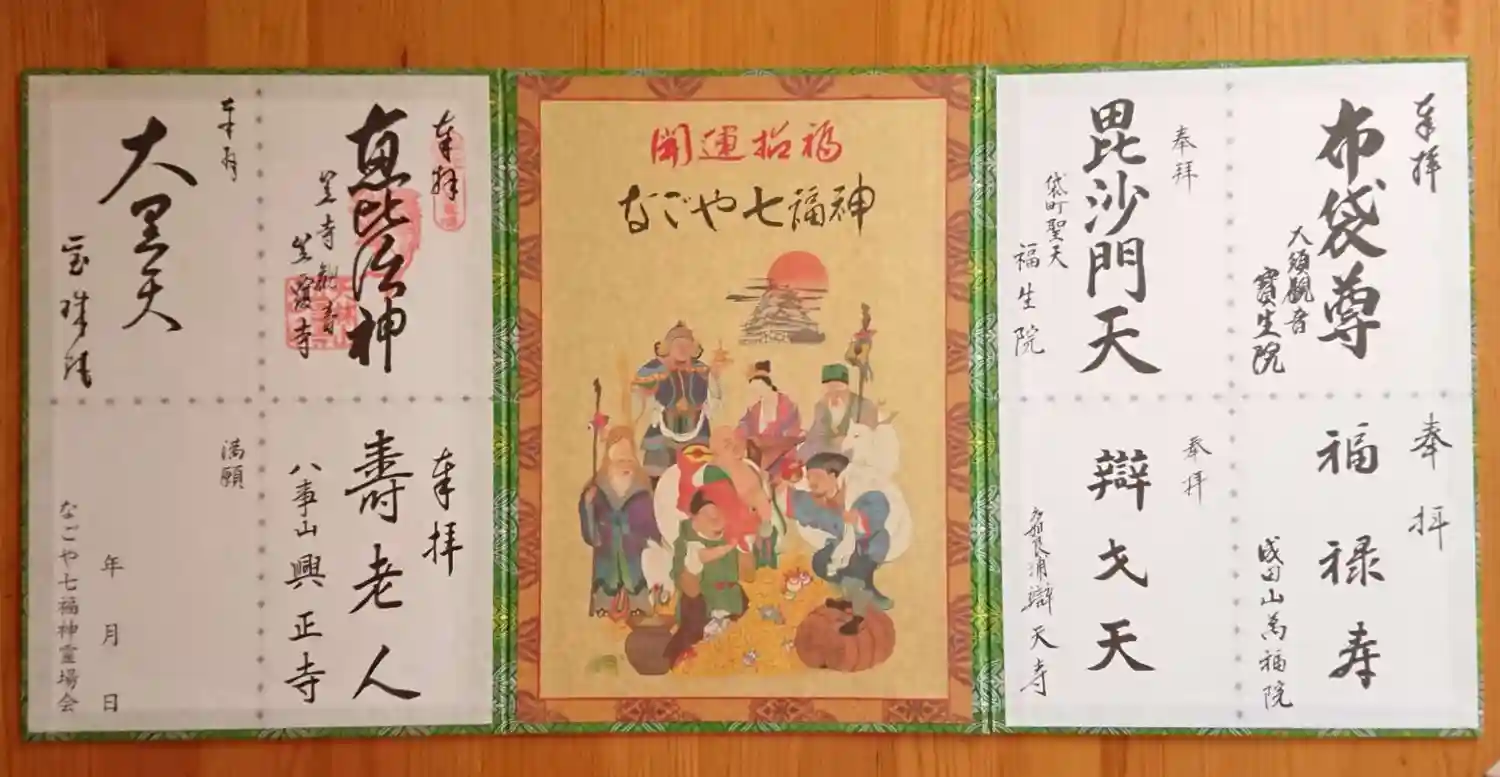 奉拝
布袋尊
大須観音
寶生院
奉拝
福禄寿
成田山萬福院
奉拝
毘沙門天
袋町聖天
福生院
奉拝
辯才天
多加良浦辯天寺
開運招福
なごや七福神
奉拝
恵比須神
笠寺観音
笠覆寺
奉拝
壽老人
八事山興正寺
奉拝
大黒天
宝珠院
満願
年月日
なごや七福神霊場会